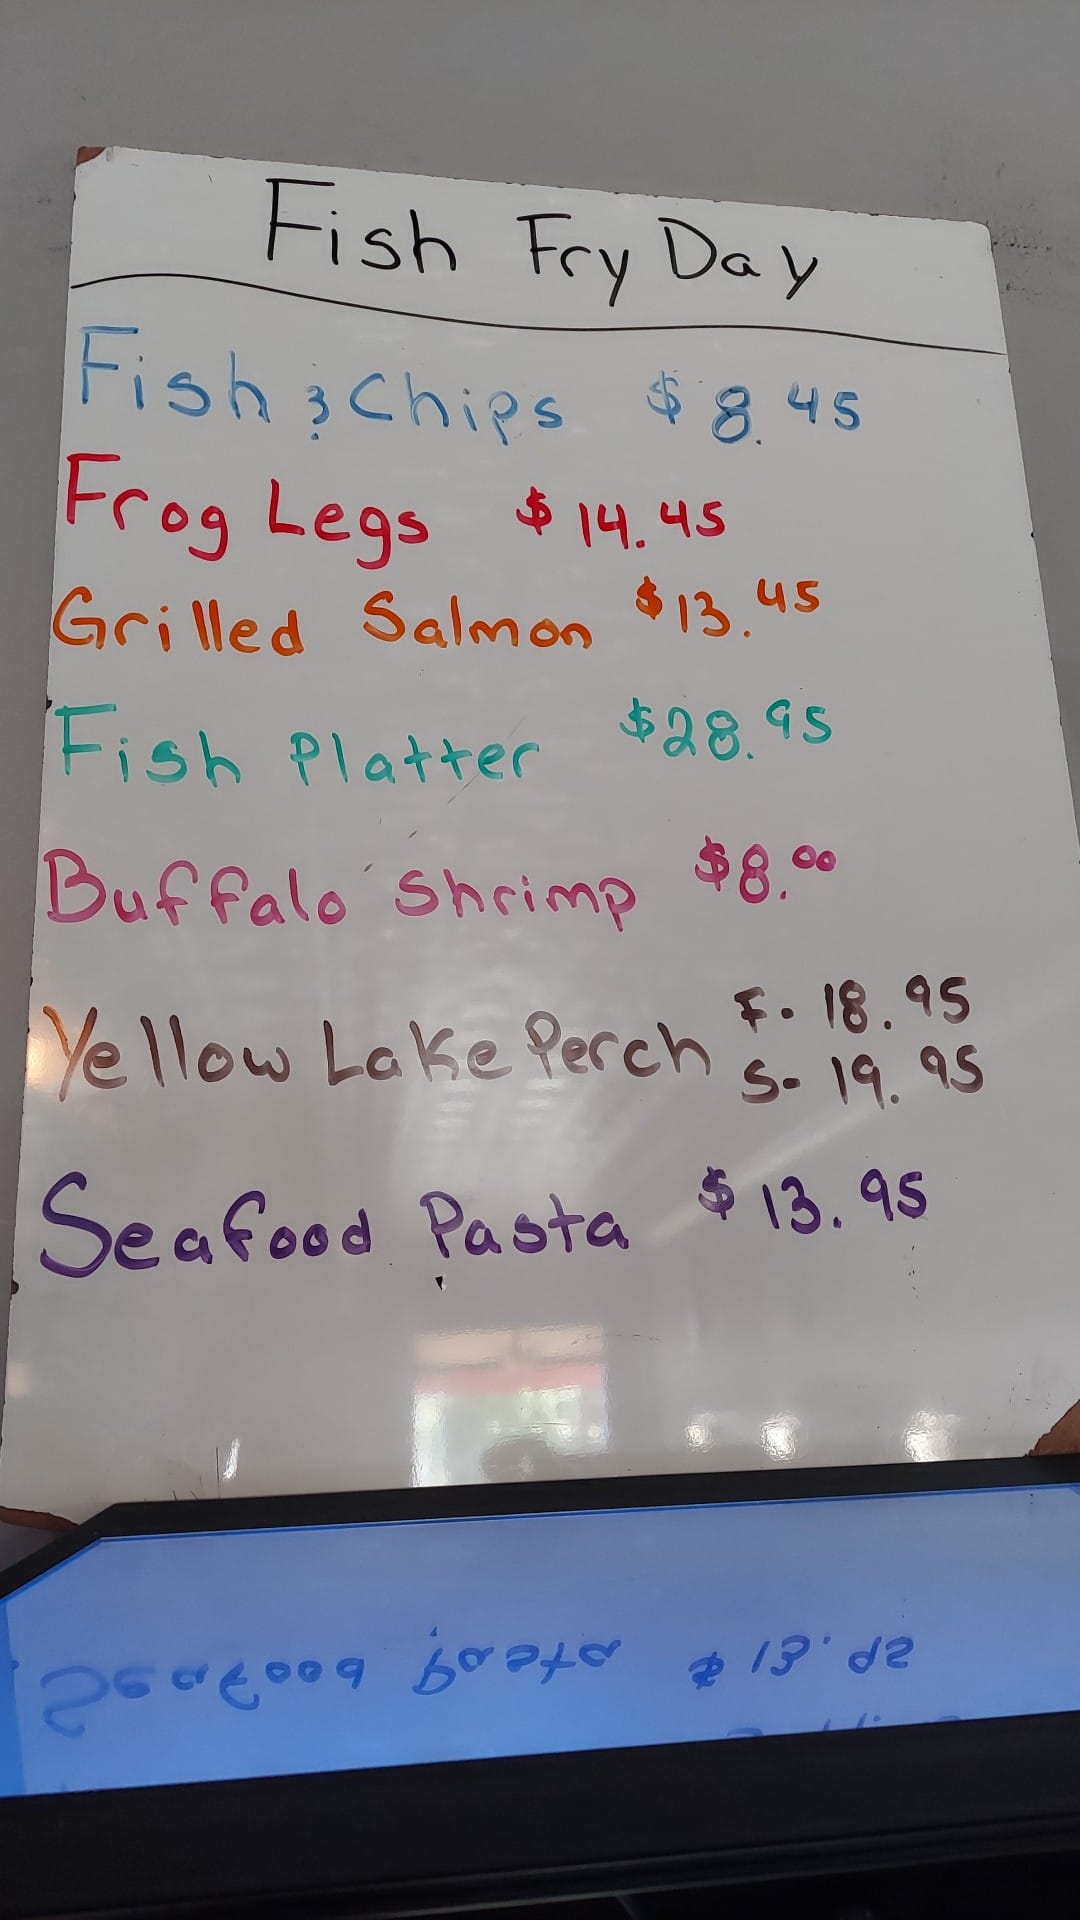 Fish Fry Day
Fish & Chips $8.45
Frog Legs $14.45
Grilled Salmon $13.45
Fish Platter $28.95
Buffalo Shrimp $8.00
Yellow Lake Perch F- 18.95
S- 19.95
Seafood Pasta $13.95